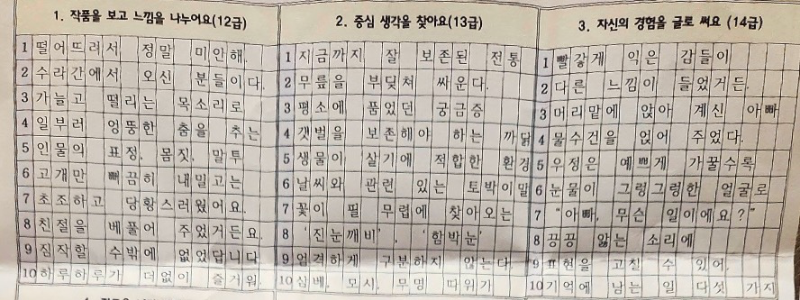 1. 작품을 보고 느낌을 나누어요(12급)
1 떨어뜨려서 정말 미안해.
2 수라간에서 오신 분들이다.
3 가늘고 떨리는 목소리로
4 일부러 엉뚱한 춤을 추는
5 인물의 표정, 몸짓, 말투
6 고개만 빼끔히 내밀고는
7 초조하고 당황스러웠어요.
8 친절을 베풀어 주었거든요.
9 짐작할 수밖에 없었답니다
10 하루하루가 더없이 즐거워.
2. 중심 생각을 찾아요(13급)
1 지금까지 잘 보존된 전통
2 무릎을 부딪쳐 싸운다.
3 평소에 품었던 궁금증
4 갯벌을 보존해야 하는 까닭
5 생물이 살기에 적합한 환경
6 날씨와 관련 있는 토박이말
7 꽃이 필 무렵에 찾아오는
8 '진눈깨비', '함박눈'
9 엄격하게 구분하지 않는다.
10 삼베, 모시, 무명 따위가
3. 자신의 경험을 글로 써요 (14급)
1 빨갛게 익은 감들이
2 다른 느낌이 들었거든.
3 머리맡에 앉아 계신 아빠
4 물수건을 얹어 주었다.
5 우정은 예쁘게 가꿀수록
6 눈물이 그렁그렁한 얼굴로
7 "아빠, 무슨 일이에요?"
8 끙끙 앓는 소리에
9 표현을 고칠 수 있어.
10 기억에 남는 일 다섯 가지